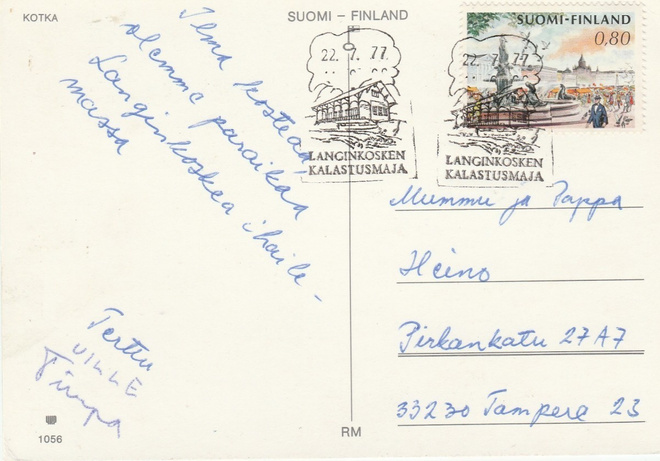 KOTKA
SUOMI – FINLAND
SUOMI-FINLAND
0,80
22. 7. 77.
LANGINKOSKEN
KALASTUSMAJA
22. 7. 77.
LANGINKOSKEN
KALASTUSMAJA
Ilma kosteaa
olemme paraikaa
Langinkoskea ihaile-
massa
Terttu
VILLE
Timpa
Mummu ja Pappa
Heino
Pirkankatu 27A7
33230 Tampere 23
1056
RM